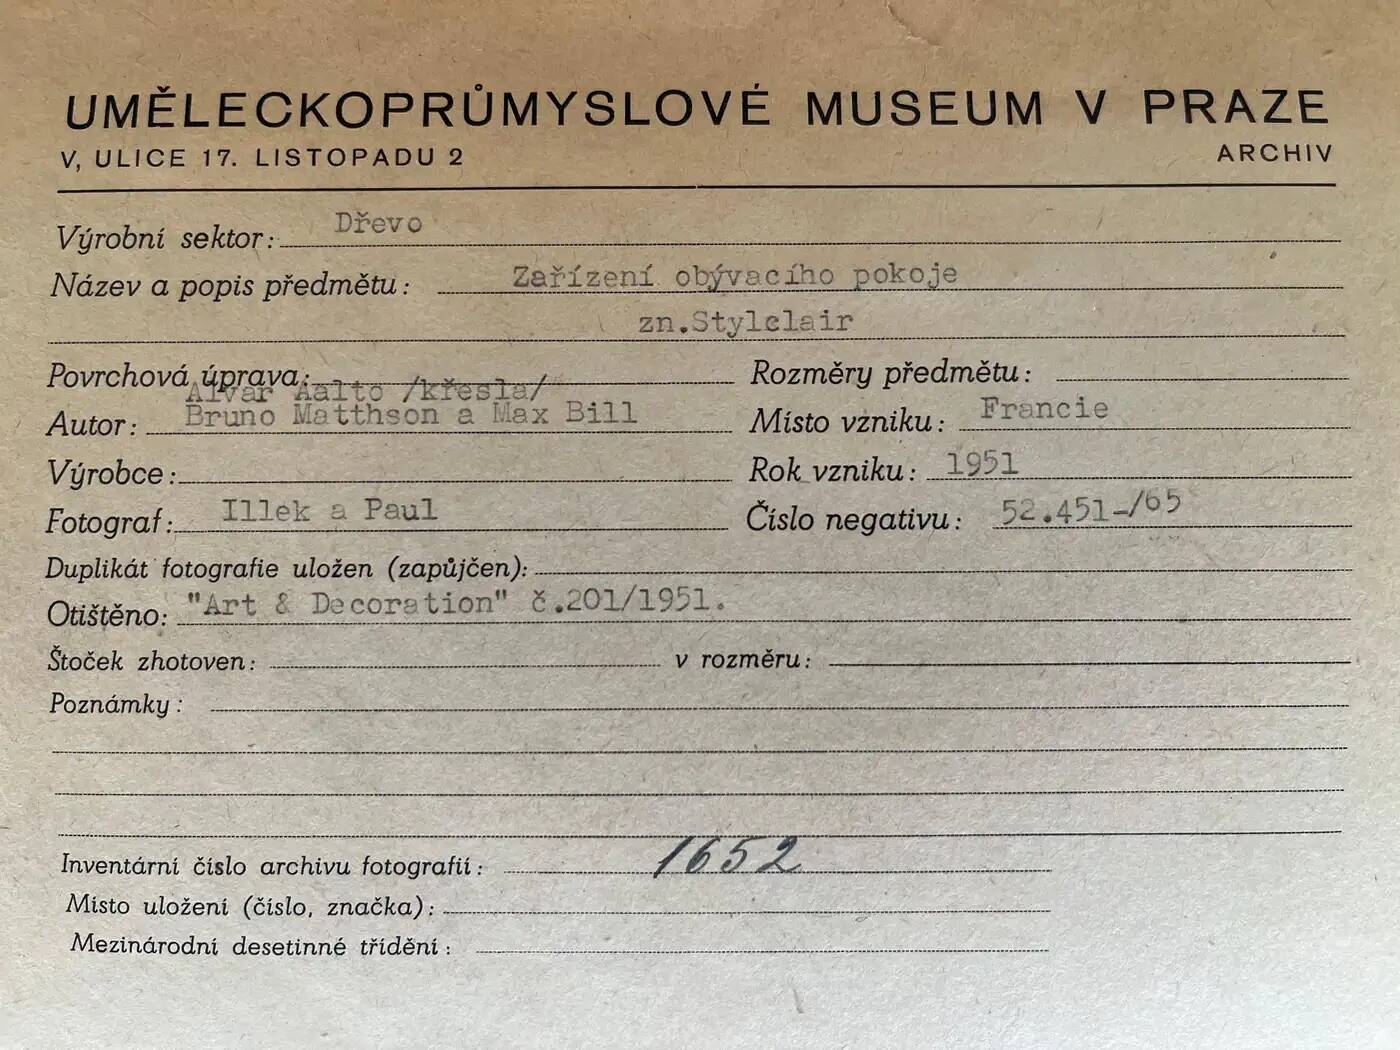 UMĚLECKOPRŮMYSLOVÉ MUSEUM V PRAZE
V, ULICE 17. LISTOPADU 2 ARCHIV
Výrobní sektor: Dřevo
Název a popis předmětu: Zařízení obývacího pokoje
zn.Stylclair
Povrchová úprava: Rozměry předmětu:
Alvar Aalto /křesla/
Autor: Bruno Matthson a Max Bill Místo vzniku: Francie
Výrobce: Rok vzniku: 1951
Fotograf: Illek a Paul Číslo negativu: 52.451-/65
Duplikát fotografie uložen (zapůjčen):
Otištěno: "Art & Decoration" č.201/1951.
Štoček zhotoven: v rozměru:
Poznámky:
Inventární číslo archivu fotografií: 1652
Místo uložení (číslo, značka):
Mezinárodní desetinné třídění: